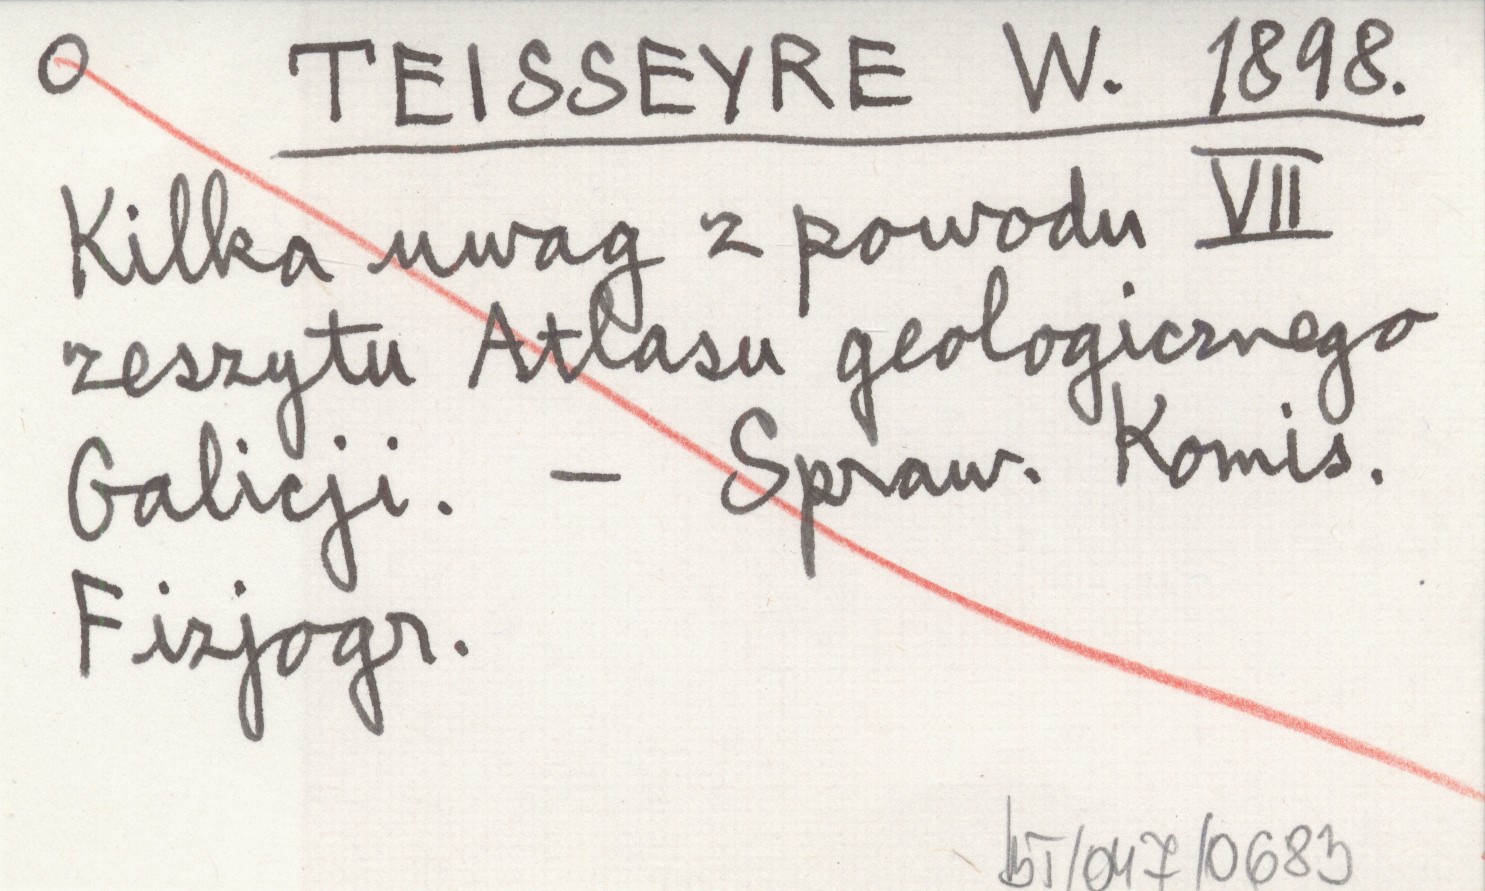 O TEISSEYRE W. 1898.
Kilka uwag z powodu VII
zeszytu Atlasu geologicznego
Galicji. – Spraw. Komis.
Fizjogr.
bT/047/0683